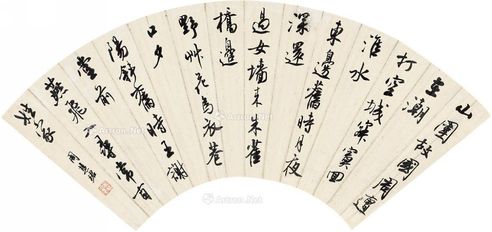 山圍故國周遭
在潮
打空城寂寞回
淮水
東邊舊時月夜
深還
過女墻來朱雀
橋邊
野艸花烏衣巷
口夕
陽斜舊時王謝
堂前
燕飛入尋常百
姓家
Artron.Net